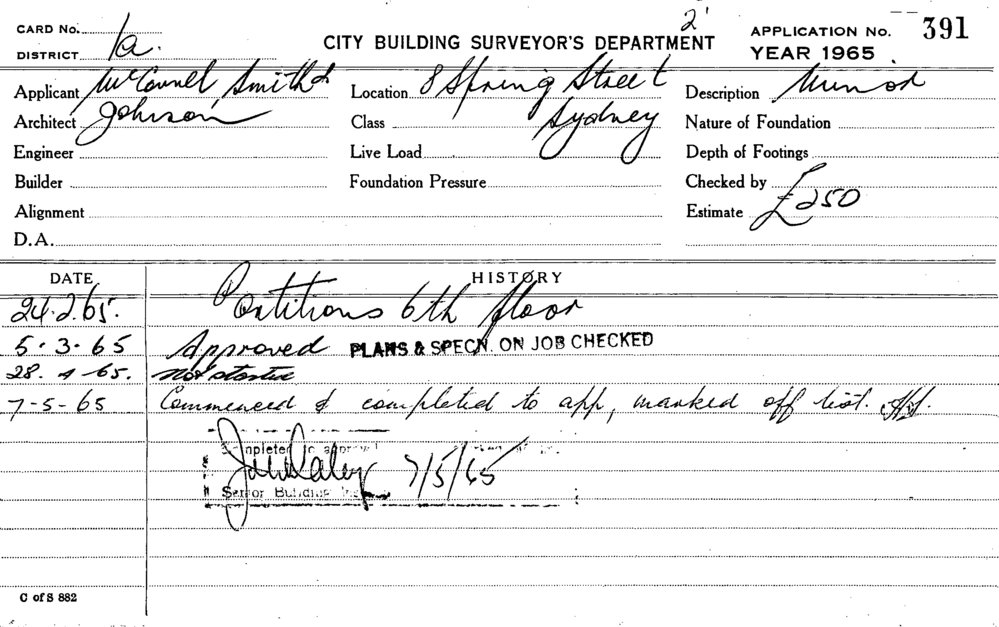 2'
CARD No. APPLICATION No. 391
DISTRICT 1a. CITY BUILDING SURVEYOR'S DEPARTMENT YEAR 1965
Applicant McConnel Smith & Location 8 Spring Street Description Minor
Architect Johnson Class Sydney Nature of Foundation
Engineer Live Load Depth of Footings
Builder Foundation Pressure Checked by
Alignment Estimate £250
D.A.
DATE HISTORY
24.2.65. Partitions 6th floor
5.3.65 Approved PLANS & SPECN. ON JOB CHECKED
28.4.65. Not started
7-5-65 Commenced & completed to app, marked off list.
Completed to approval
7/5/65
Senior Building
C of S 882